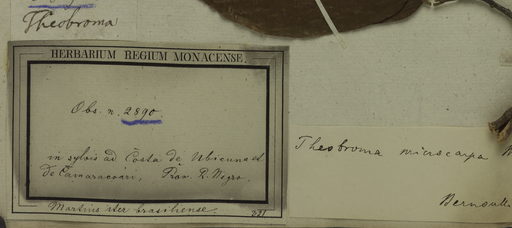 Theobroma
HERBARIUM REGIUM MONACENSE.
Obs. n. 2890
in sylvis ad Costa de Ubicuna et
de Camaracoari, Prov. R. Negro.
Martius iter brasiliense.
Theobroma microcarpa
Bernoulli